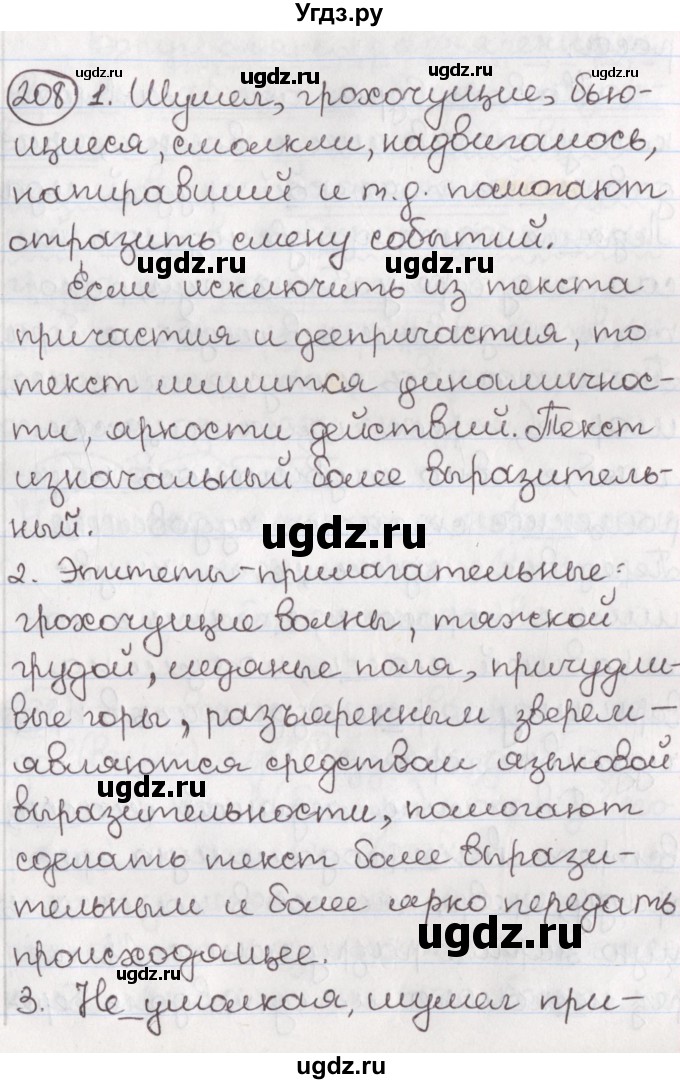 Угдз.ру
208 1. Шумел, грохочущие, бью-
щиеся, смолкли, надвигалось,
напиравший и т.д. помогают
отразить смену событий.
Если исключить из текста
причастия и деепричастия, то
текст лишится динамичнос-
ти, яркости действий. Текст
изначальный более выразитель-
ный.
2. Эпитеты-прилагательные:
грохочущие волны, тяжкой
грудой, ледяные поля, причудли-
вые горы, разъяренным зверем -
являются средством языковой
выразительности, помогают
сделать текст более вырази-
тельным и более ярко передать
происходящее.
3. Не умолкая, шумел при-
ugdz.ru